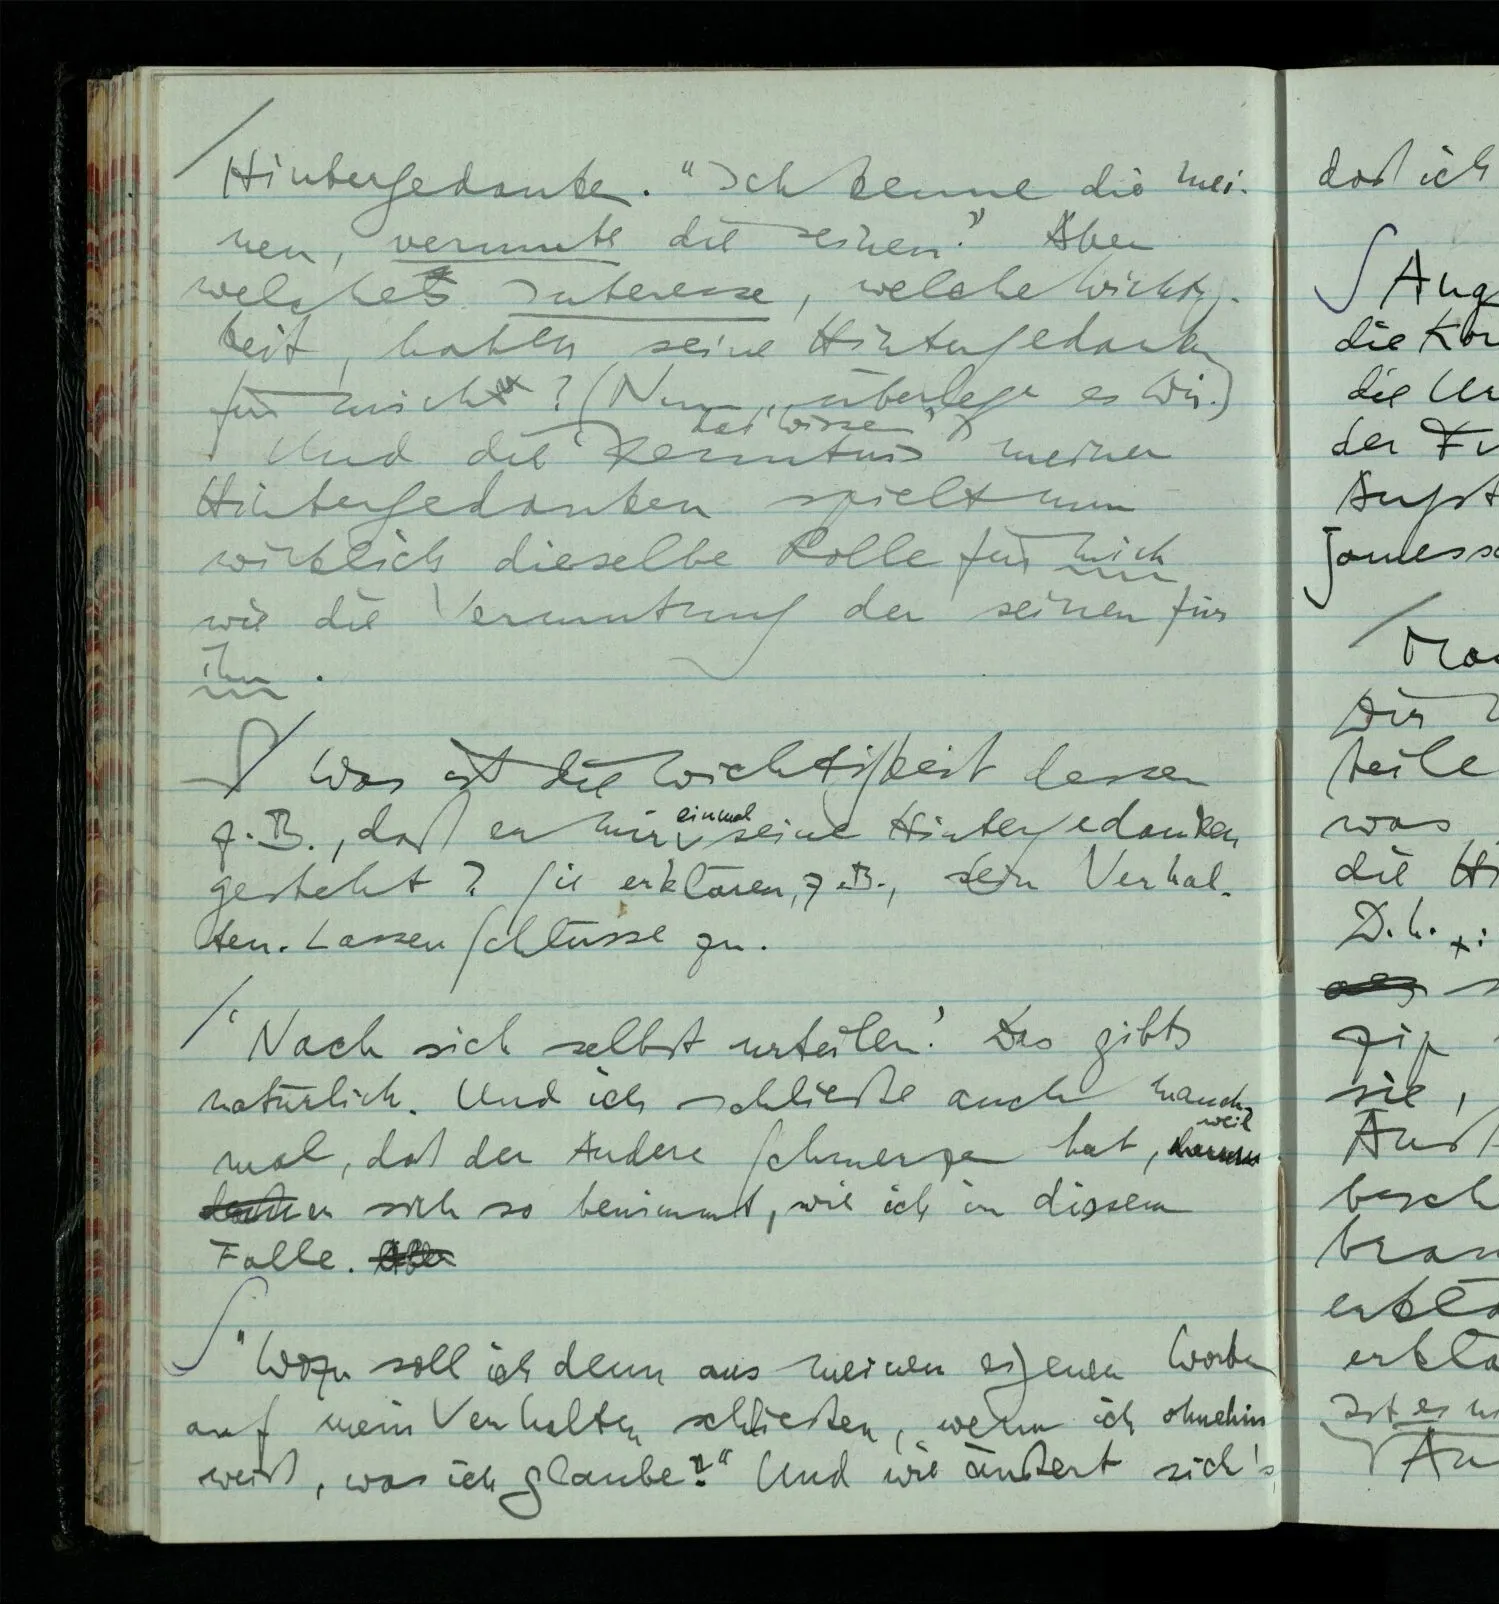 Hintergedanke. "Ich kenne die mei-
nen, vermute die seinen." Aber
welches Interesse, welche Wichtig-
keit, haben seine Hintergedanken
für mich? (Nun, überlege es Dir.)
das 'Wissen'
Und die 'Kenntnis meiner
Hintergedanken spielt nun
wirklich dieselbe Rolle für mich
wie die Vermutung der seinen für
ihn.
Was ist die Wichtigkeit dessen
z.B., daß er mir einmal seine Hintergedanken
gesteht? Sie erklären, z.B., sein Verhal-
ten. Lassen Schlüsse zu.
'Nach sich selbst urteilen.' Das gibts
natürlich. Und ich schließe auch manch-
weil
mal, daß der Andere Schmerzen hat, darum
er sich so benimmt, wie ich in diesem
Falle. Aber
"Wozu soll ich denn aus meinen eigenen Worten
auf mein Verhalten schließen, wenn ich ohnehin
weiß, was ich glaube?" Und wie äußert sich's
daß ich
Aug
die
die
der
Angst
James
Dir
teile
was
die
D.h.
sie,
ist es